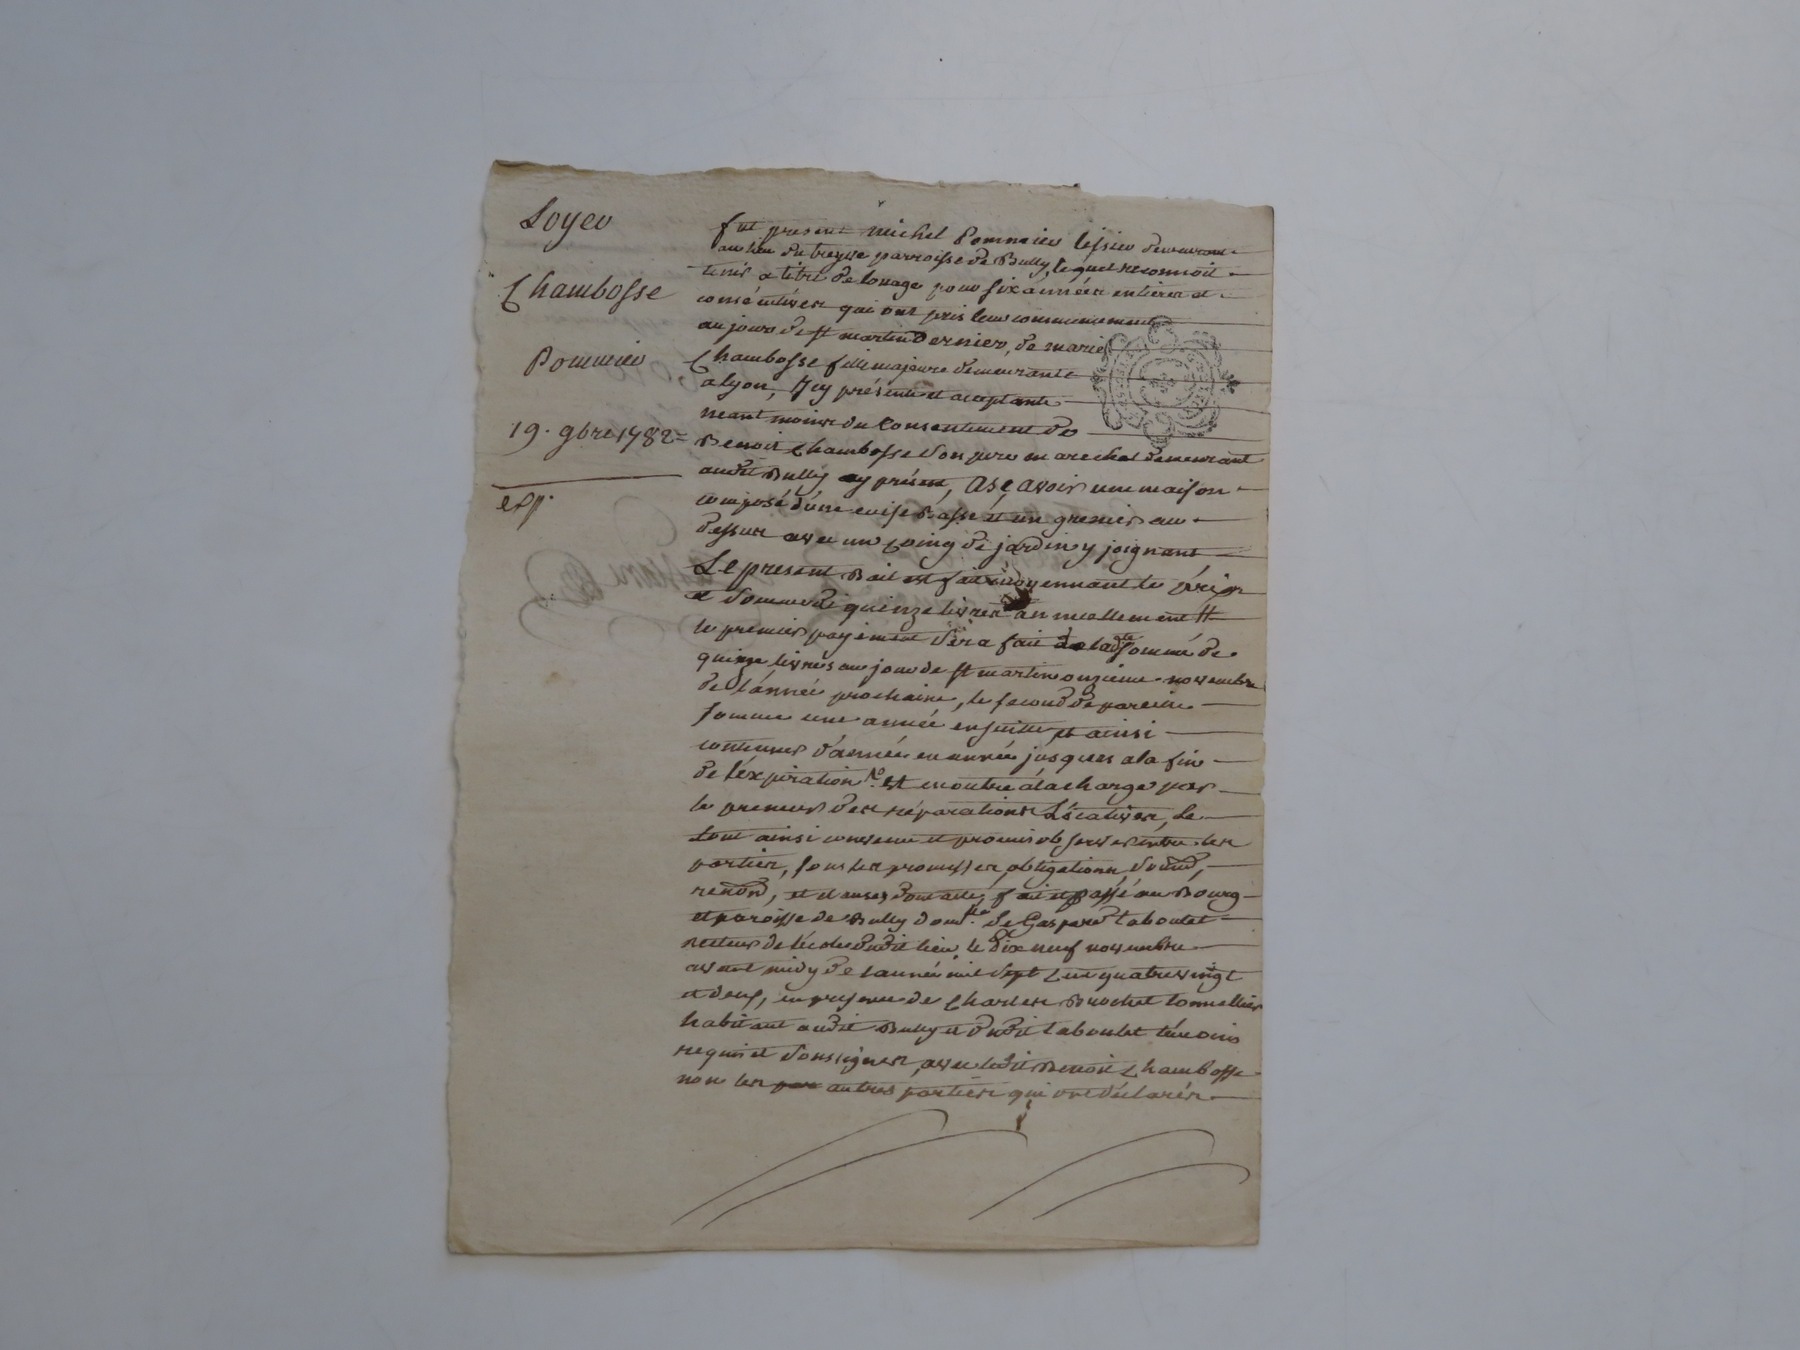 Loyer
Chambosse
Pommier
19. 9bre 1782=
exp.
fut present michel Pommier tissier demeurant
au lieu du treyve parroisse de Bully, lequel reconnoit
tenir a titre de louage pour six années entieres et
consécutives qui ont pris leur commencement
au jour de st martin Dernier, de marie
Chambosse fille majeure demeurante
a lyon, icy présente et aceptante
neant moins du Consentement de
Benoit Chambosse son pere marechal demeurant
audit Bully cy présent, ascavoir une maison
composé d'une Basse et un grenier au
dessus avec un Coing de jardin y joignant
Le present Bail est fait moyennant le prix
et Somme de quinze livres annuellement
le premier payement sera fait de ladte Somme de
quinze livres au jour de st martin onzieme novembre
de l'année prochaine, le second de pareille
somme une année ensuitte, et ainsi
continuer d'année en année jusques a la fin
de l'éxpiration et en outre à la charge par
le preneur des réparations Locatives, Le
tout ainsi convenu et promis observer entre les
parties, sous les promesses, obligations, soumd,
renond, et clauses dont acte, fait et passé au Bourg
et paroisse de Bully domlle de Gaspard taboulet
recteur de l'école dudit lieu, le Dix neuf novembre
avant midy de l'année mil sept Cent quatre vingt
et deux, en presence de Charles Brochet tonnellier
habitant audit Bully et dudit taboulet témoins
requis et soussignés, avec ledit Benoit Chambosse
non les autres parties qui ont déclarés